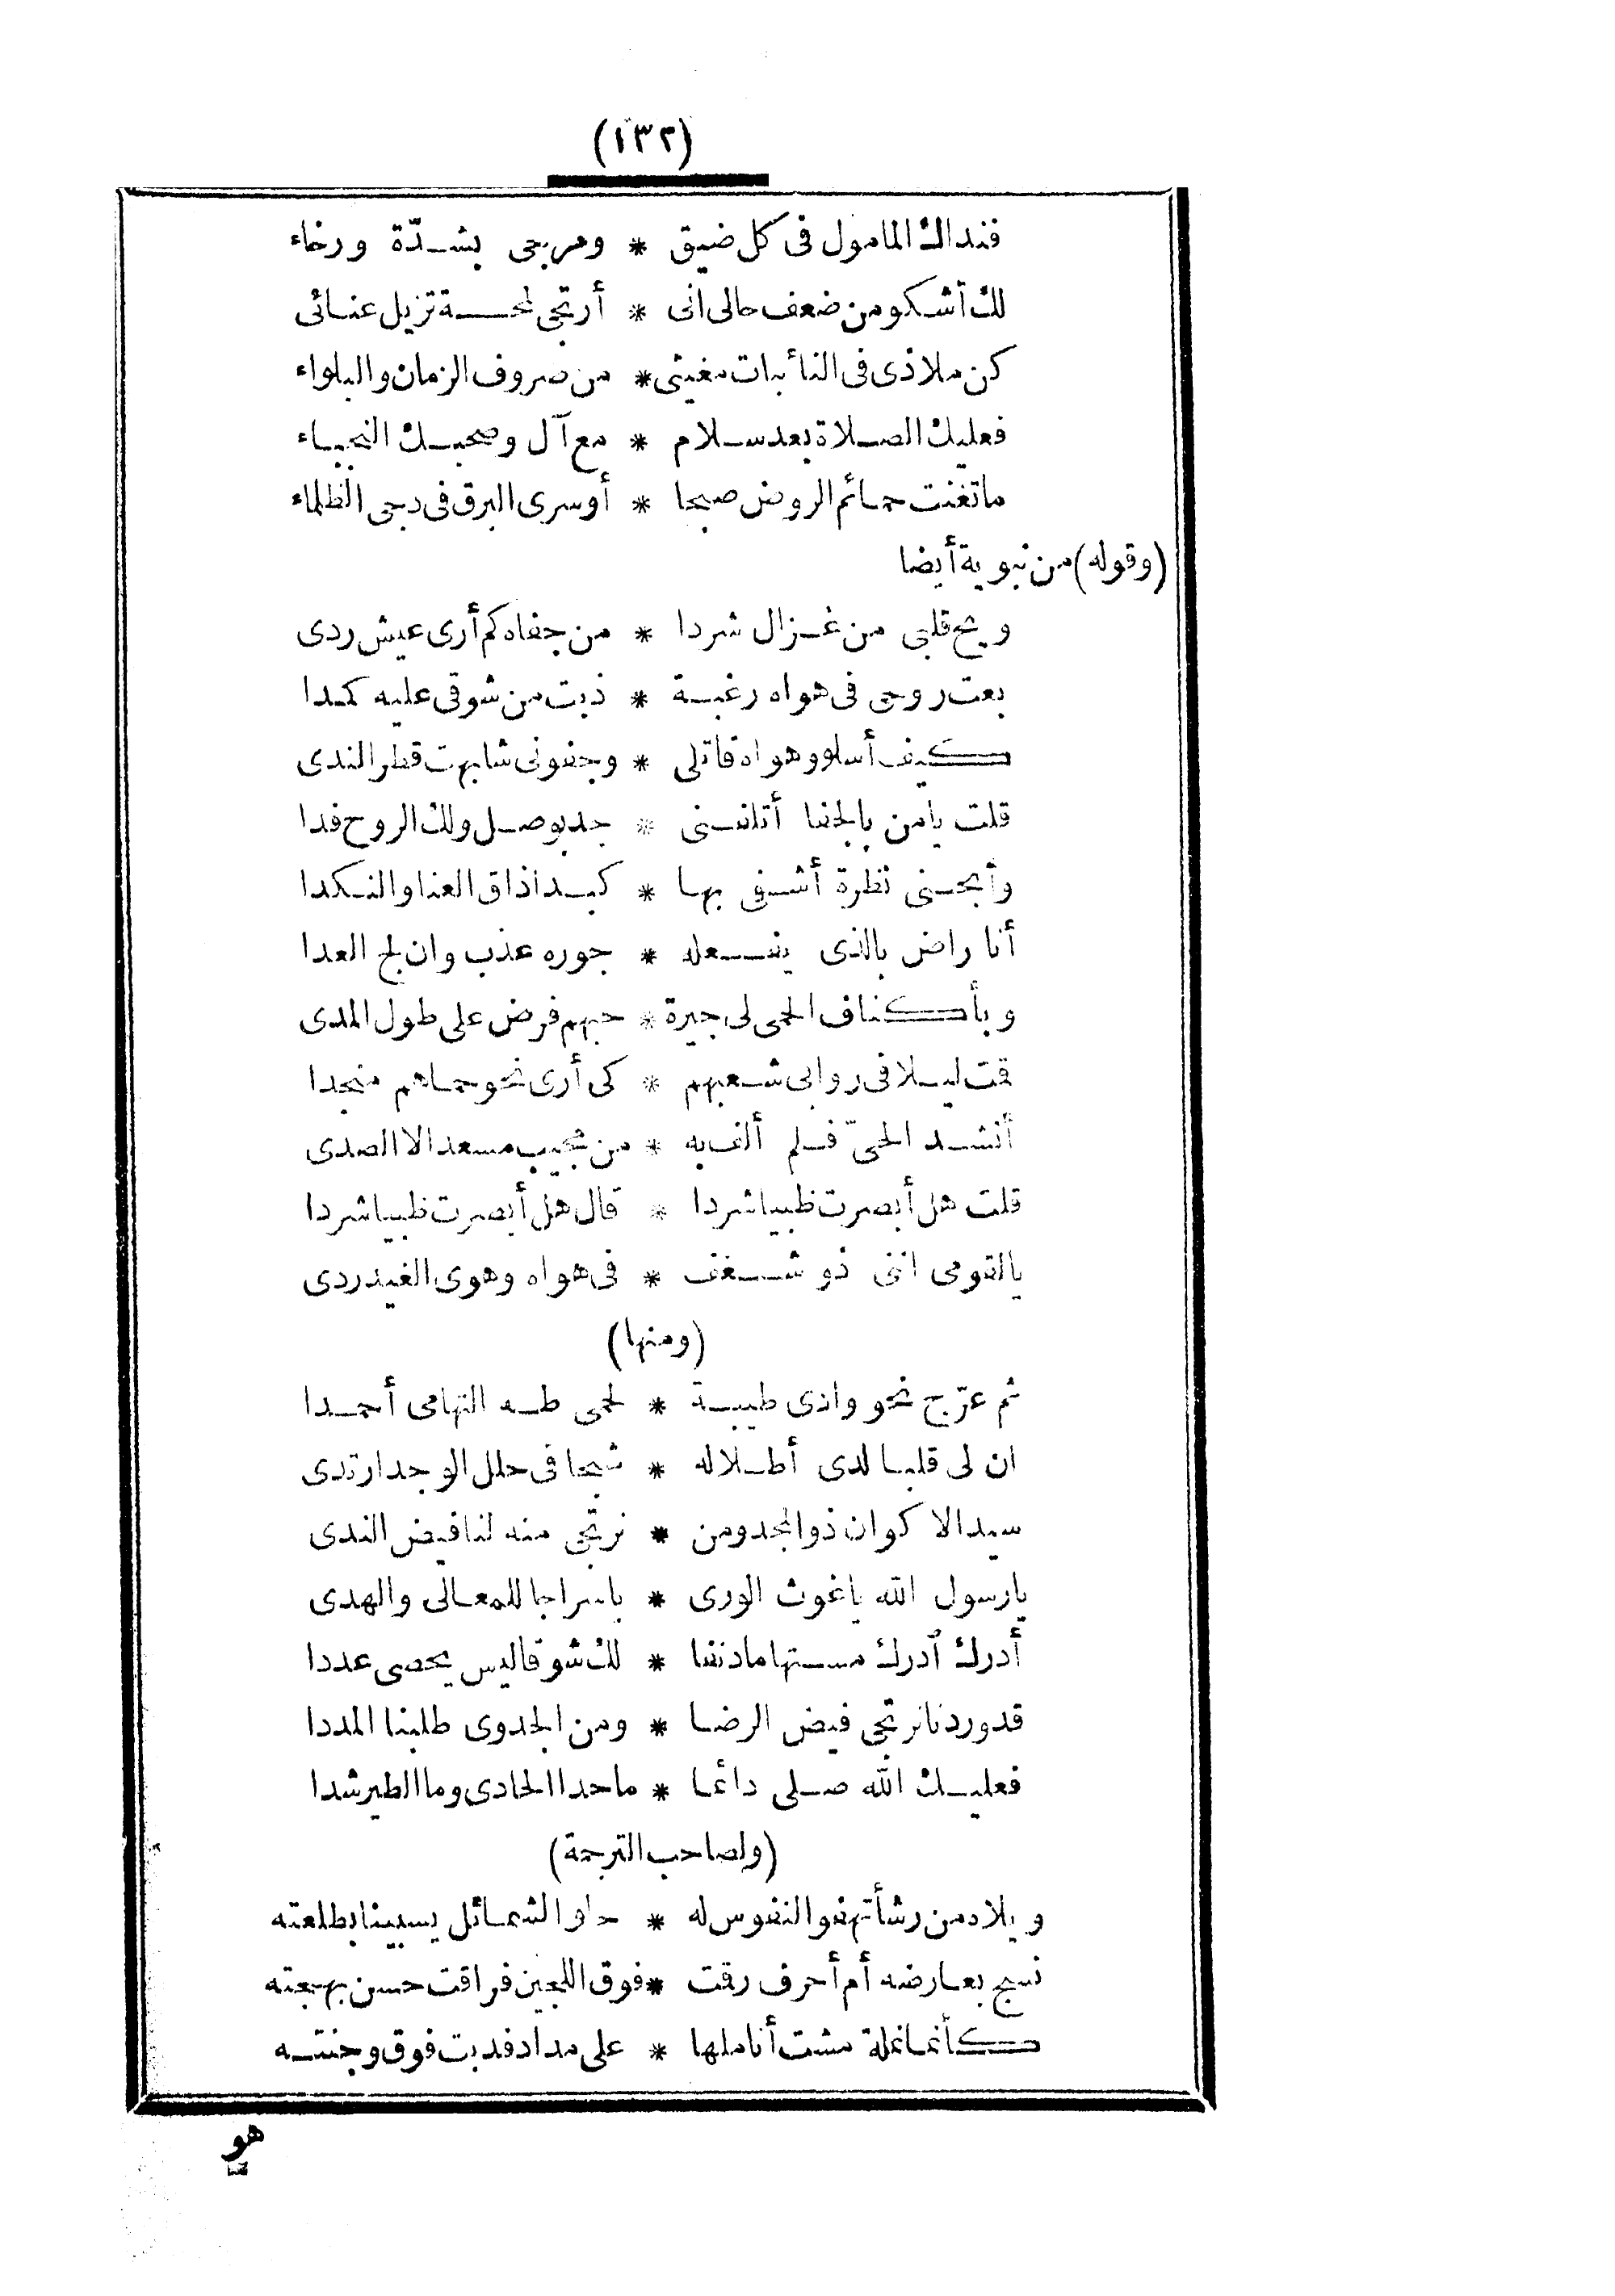 (١٣٢)
فنداك المامول فى كل ضيق * ومربحى بشدّة ورخاء
لك أشكو من ضعف حالى انى * أرتجى لمحة تزيل عنائى
كن ملاذى فى النائبات مغيثى * من صروف الزمان والبلواء
فعليك الصلاة بعد سلام * مع آل وصحبك النجباء
ما تغنت حمائم الروض صبحا * أو سرى البرق فى دجى الظلماء
(وقوله) من نبوية أيضا
ويح قلبى من غزال شردا * من جفاه كم أرى عيش ردى
بعت روحى فى هواه رغبة * ذبت من شوقى عليه كمدا
كيف أسلو وهواه قاتلى * وجفونى شابهت قطر الندى
قلت يا من بالجفا أتلفنى * جد بوصل ولك الروح فدا
وأبحنى نظرة أشفى بها * كبدا ذاق العنا والنكدا
أنا راض بالذى يفعله * جوره عذب وان لج العدا
وبأكناف الحمى لى جيرة * حبهم فرض على طول المدى
قمت ليلا فى روابى شعبهم * كى أرى نحو حماهم منجدا
أنشد الحىّ فلم ألف به * من مجيب مسعد الا الصدى
قلت هل أبصرت ظبيا شردا * قال هل أبصرت ظبيا شردا
يا لقومى اننى ذو شغف * فى هواه وهوى الغيد ردى
(ومنها)
ثم عرّج نحو وادى طيبة * لحمى طه التهامى أحمدا
ان لى قلبا لدى أطلاله * شجا فى حلل الوجد ارتدى
سيد الاكوان ذو المجد ومن * نرتجى منه لنا فيض الندى
يا رسول الله يا غوث الورى * يا سراجا للمعالى والهدى
أدرك أدرك مستهاما دنفا * لك شوقا ليس يحصى عددا
قد وردنا نرتجى فيض الرضا * ومن الجدوى طلبنا المددا
فعليك الله صلى دائما * ما حدا الحادى وما الطير شدا
(ولصاحب الترجمة)
ويلاه من رشأ تهفو النفوس له * حلو الشمائل يسبينا بطلعته
نسج بعارضه أم أحرف رقت * فوق اللجين فراقت حسن بهجته
كأنما نملة مشت أناملها * على مداد فدبت فوق وجنته
هو